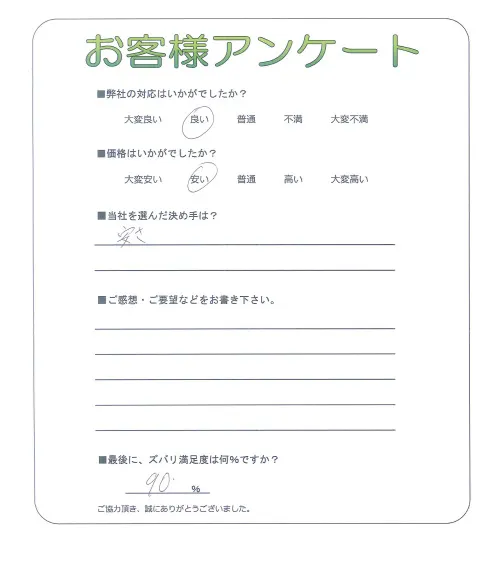 お客様アンケート
■弊社の対応はいかがでしたか？
大変良い 良い 普通 不満 大変不満
■価格はいかがでしたか？
大変安い 安い 普通 高い 大変高い
■当社を選んだ決め手は？
安さ
■ご感想・ご要望などをお書き下さい。
■最後に、ズバリ満足度は何%ですか？
90 %
ご協力頂き、誠にありがとうございました。